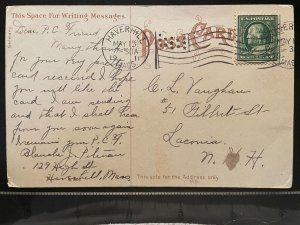 This Space For Writing Messages.
Dear P.C. Friend
Many thanks
for your very pretty
card received I hope
you will like the
card I am sending
and that I shall hear
from you soon again
I remain your P.C.F.
Blanche J.
129 High St
Haverhill, Mass
Germany
HAVERHILL
MAY 13
MASS.
POST CARD
U.S. POSTAGE
C. L. Vaughan
#51 Filbert St
Laconia
N. H.
This side for the Address only.